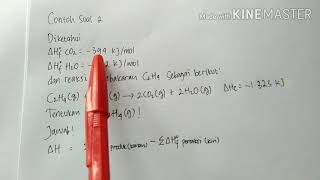 Made With
KINEMASTER
Contoh Soal 2
Diketahui
ΔHf° CO2 = -394 kJ/mol
ΔHf° H2O = kJ/mol
dan reaksi pembakaran C2H4 sebagai berikut:
C2H4(g) (g) → 2CO2(g) + 2H2O(g) ΔHc = -1 323 kJ
Tentukan H4(g)!
Jawab!
ΔH = produk(kanan) - ΣΔHf° pereaksi (kiri)